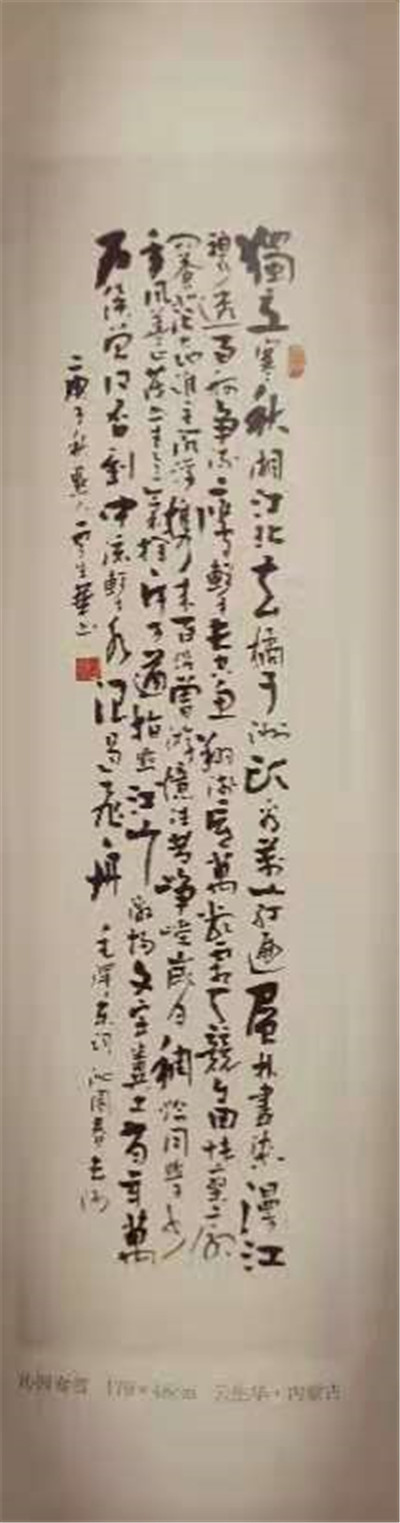 獨立寒秋湘江北去橘子洲頭看萬山紅遍層林盡染漫江
碧透百舸爭流鷹擊長空魚翔淺底萬類霜天競自由悵寥廓
問蒼茫大地誰主沉浮攜來百侶曾游憶往昔崢嶸歲月稠恰同學少
年風華正茂書生意氣揮斥方遒指點江山激揚文字糞土當年萬
户侯曾记否到中流擊水浪遏飛舟 毛澤東詞沁園春長沙
庚子秋 雲生華
170×48cm 云生华·内蒙古